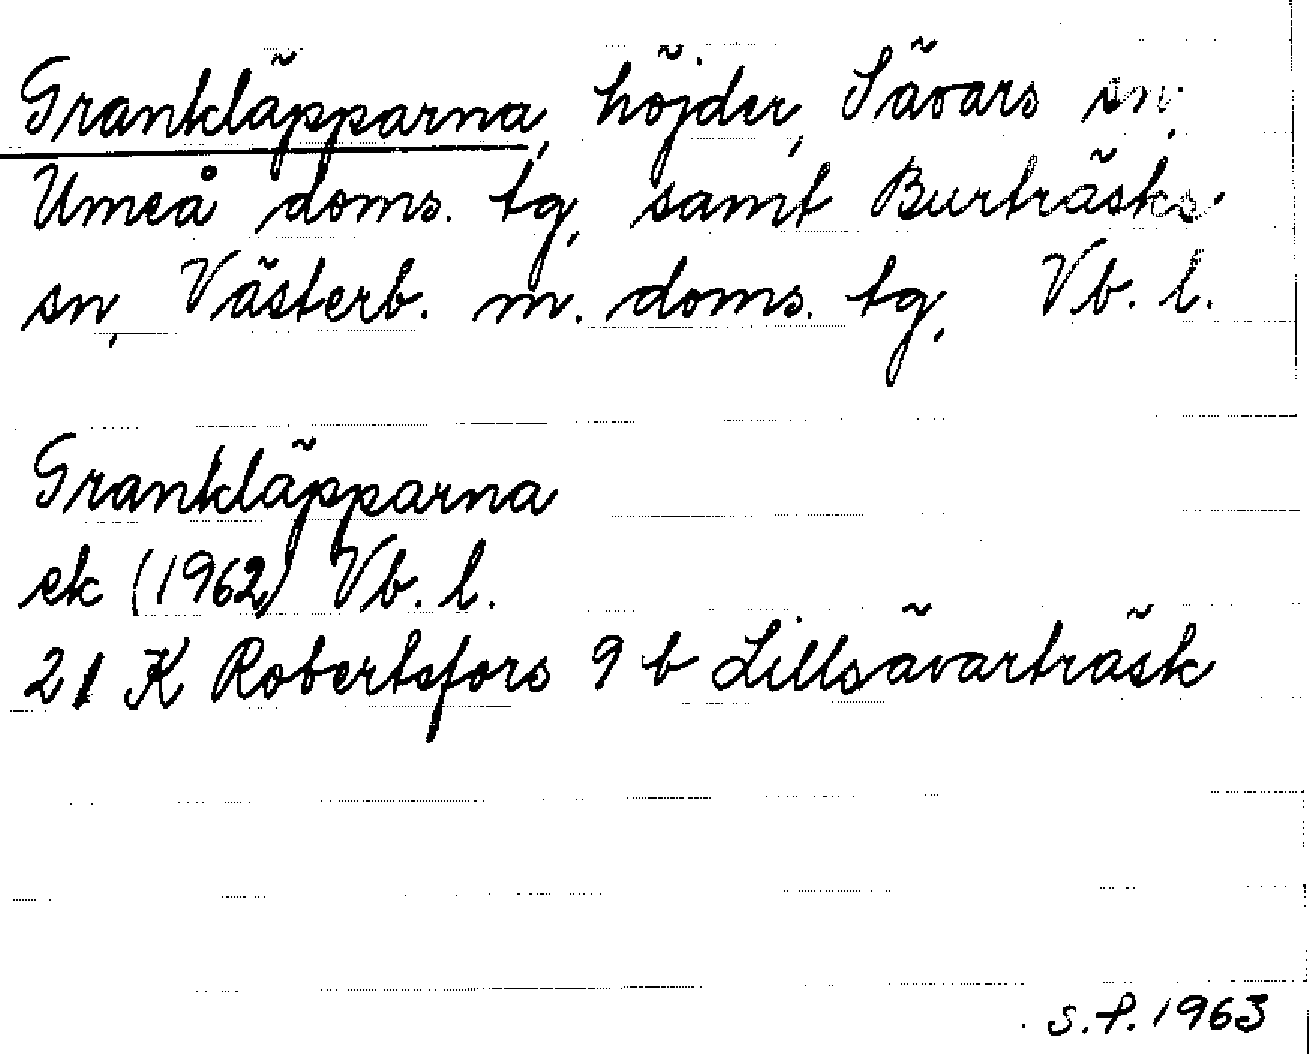 Grankläpparna, höjder, Sävars sn,
Umeå doms. tg, samt Burträsks
sn, Västerb. m. doms. tg, Vb. l.
Grankläpparna
ek (1962) Vb. l.
21 K Robertsfors 9 b Lillsävarträsk
S.P. 1963